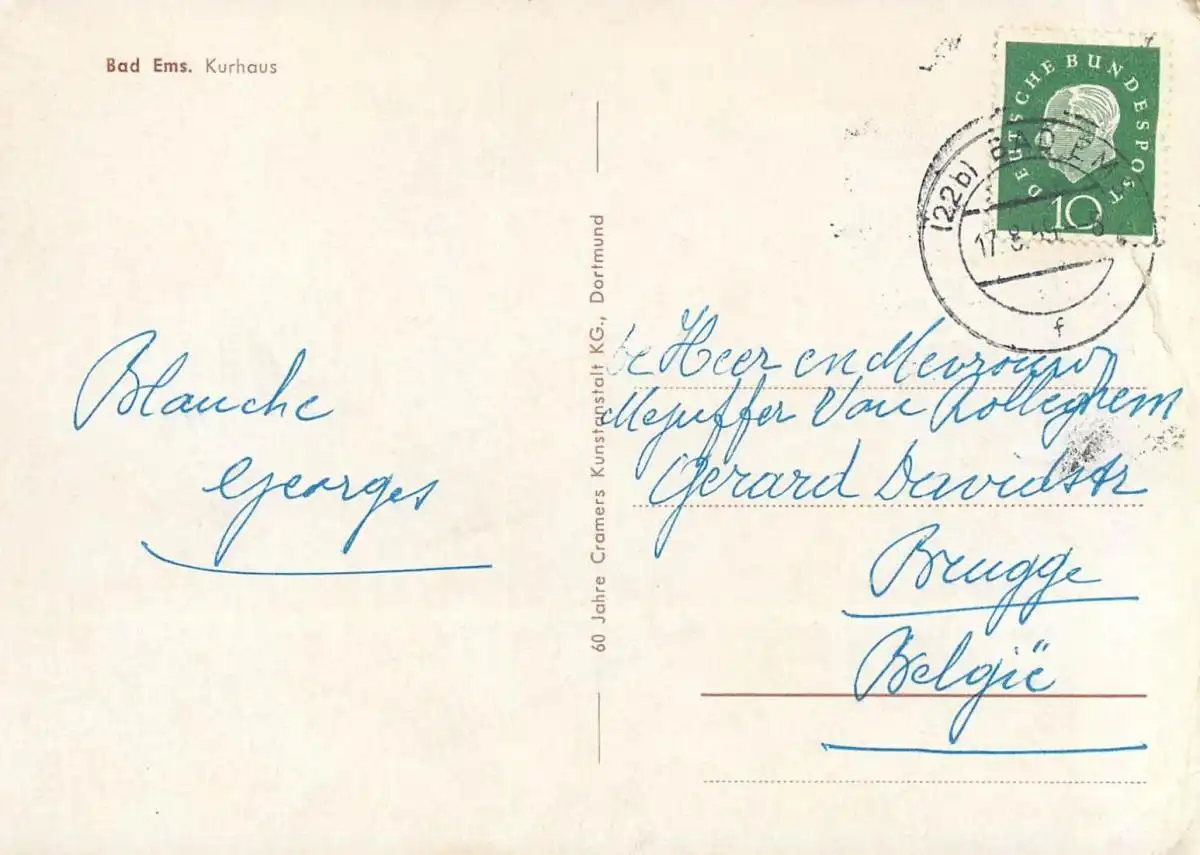 Bad Ems. Kurhaus
DEUTSCHE BUNDESPOST
10
(22b) BAD EMS
17. 8. 59. - 8
f
Blanche
Georges
60 Jahre Cramers Kunstanstalt KG., Dortmund
De Heer en Mevrouw
Mejuffer Van Rolleghem
Gerard Davidstr
Brugge
België